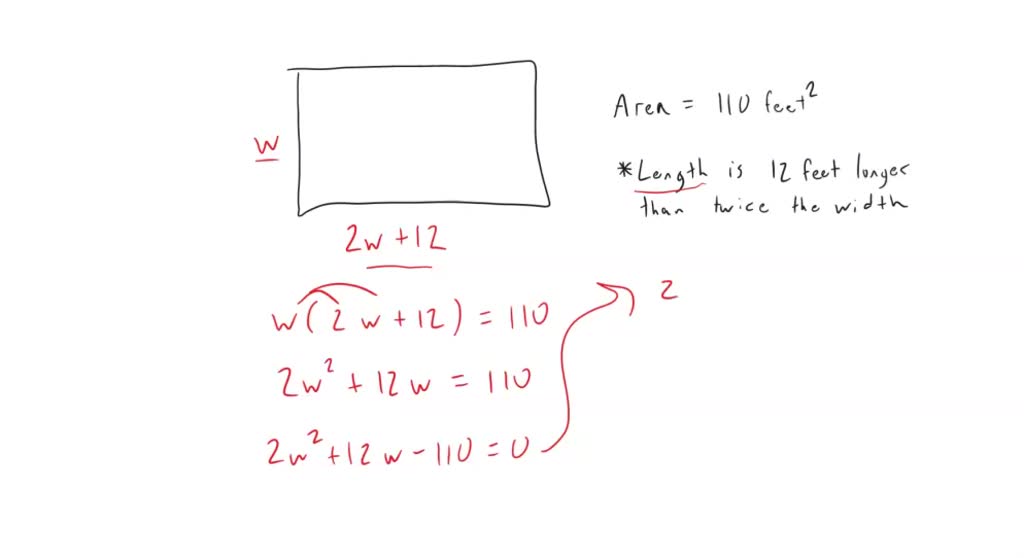 Area = 110 feet²
*Length is 12 feet longer
than twice the width
w
2w + 12
w(2w + 12) = 110
2w² + 12w = 110
2w² + 12w - 110 = 0
2